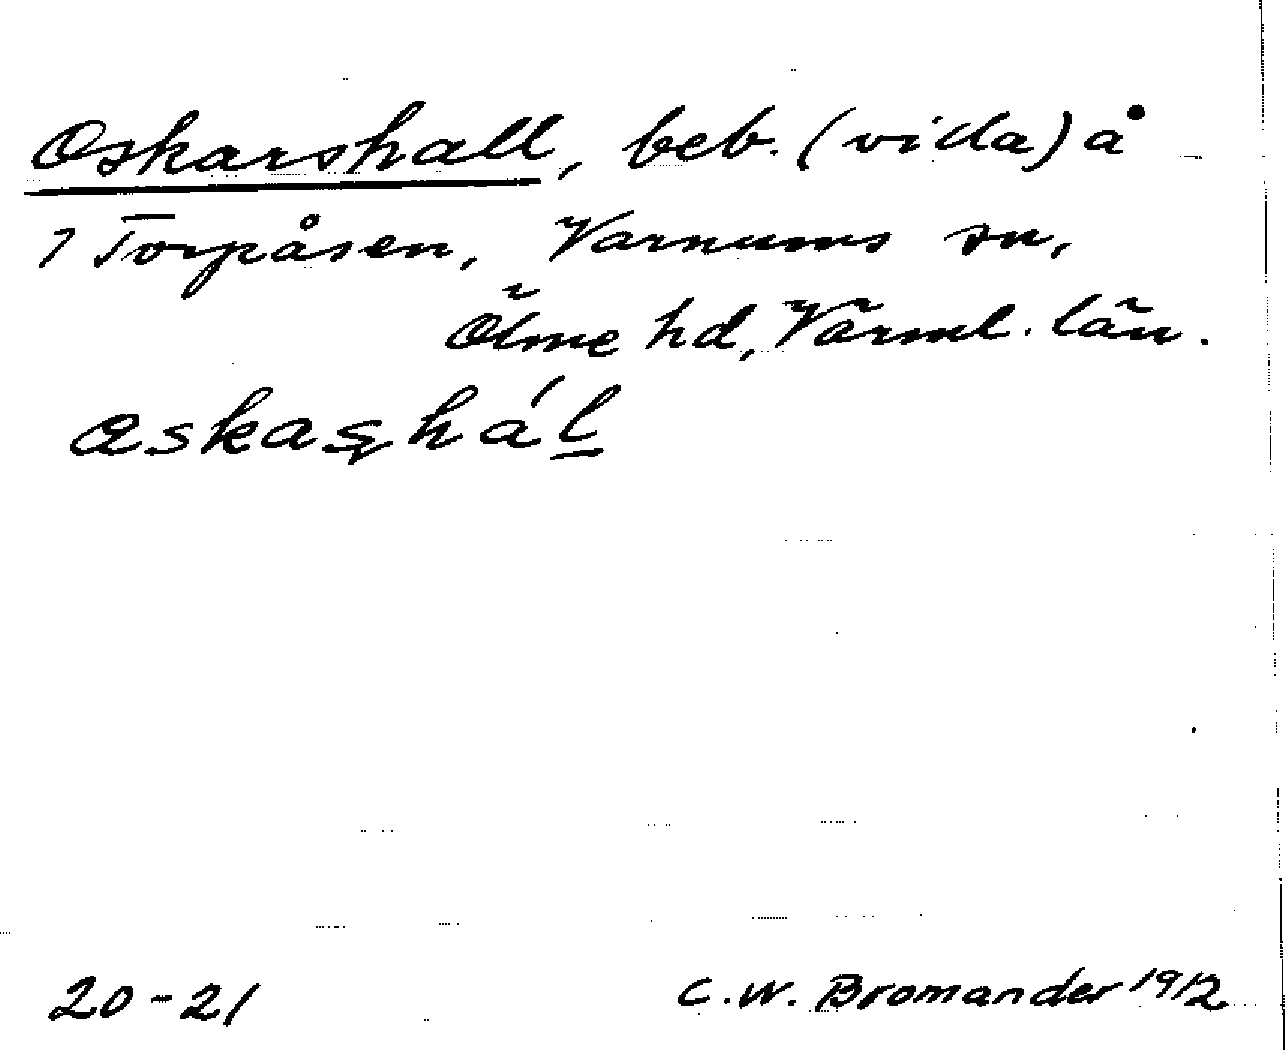 Oskarshall, beb. (villa) å
1 Torpåsen, Varnums sn,
Ölme hd, Värml. län.
20-21
C. W. Bromander 1912